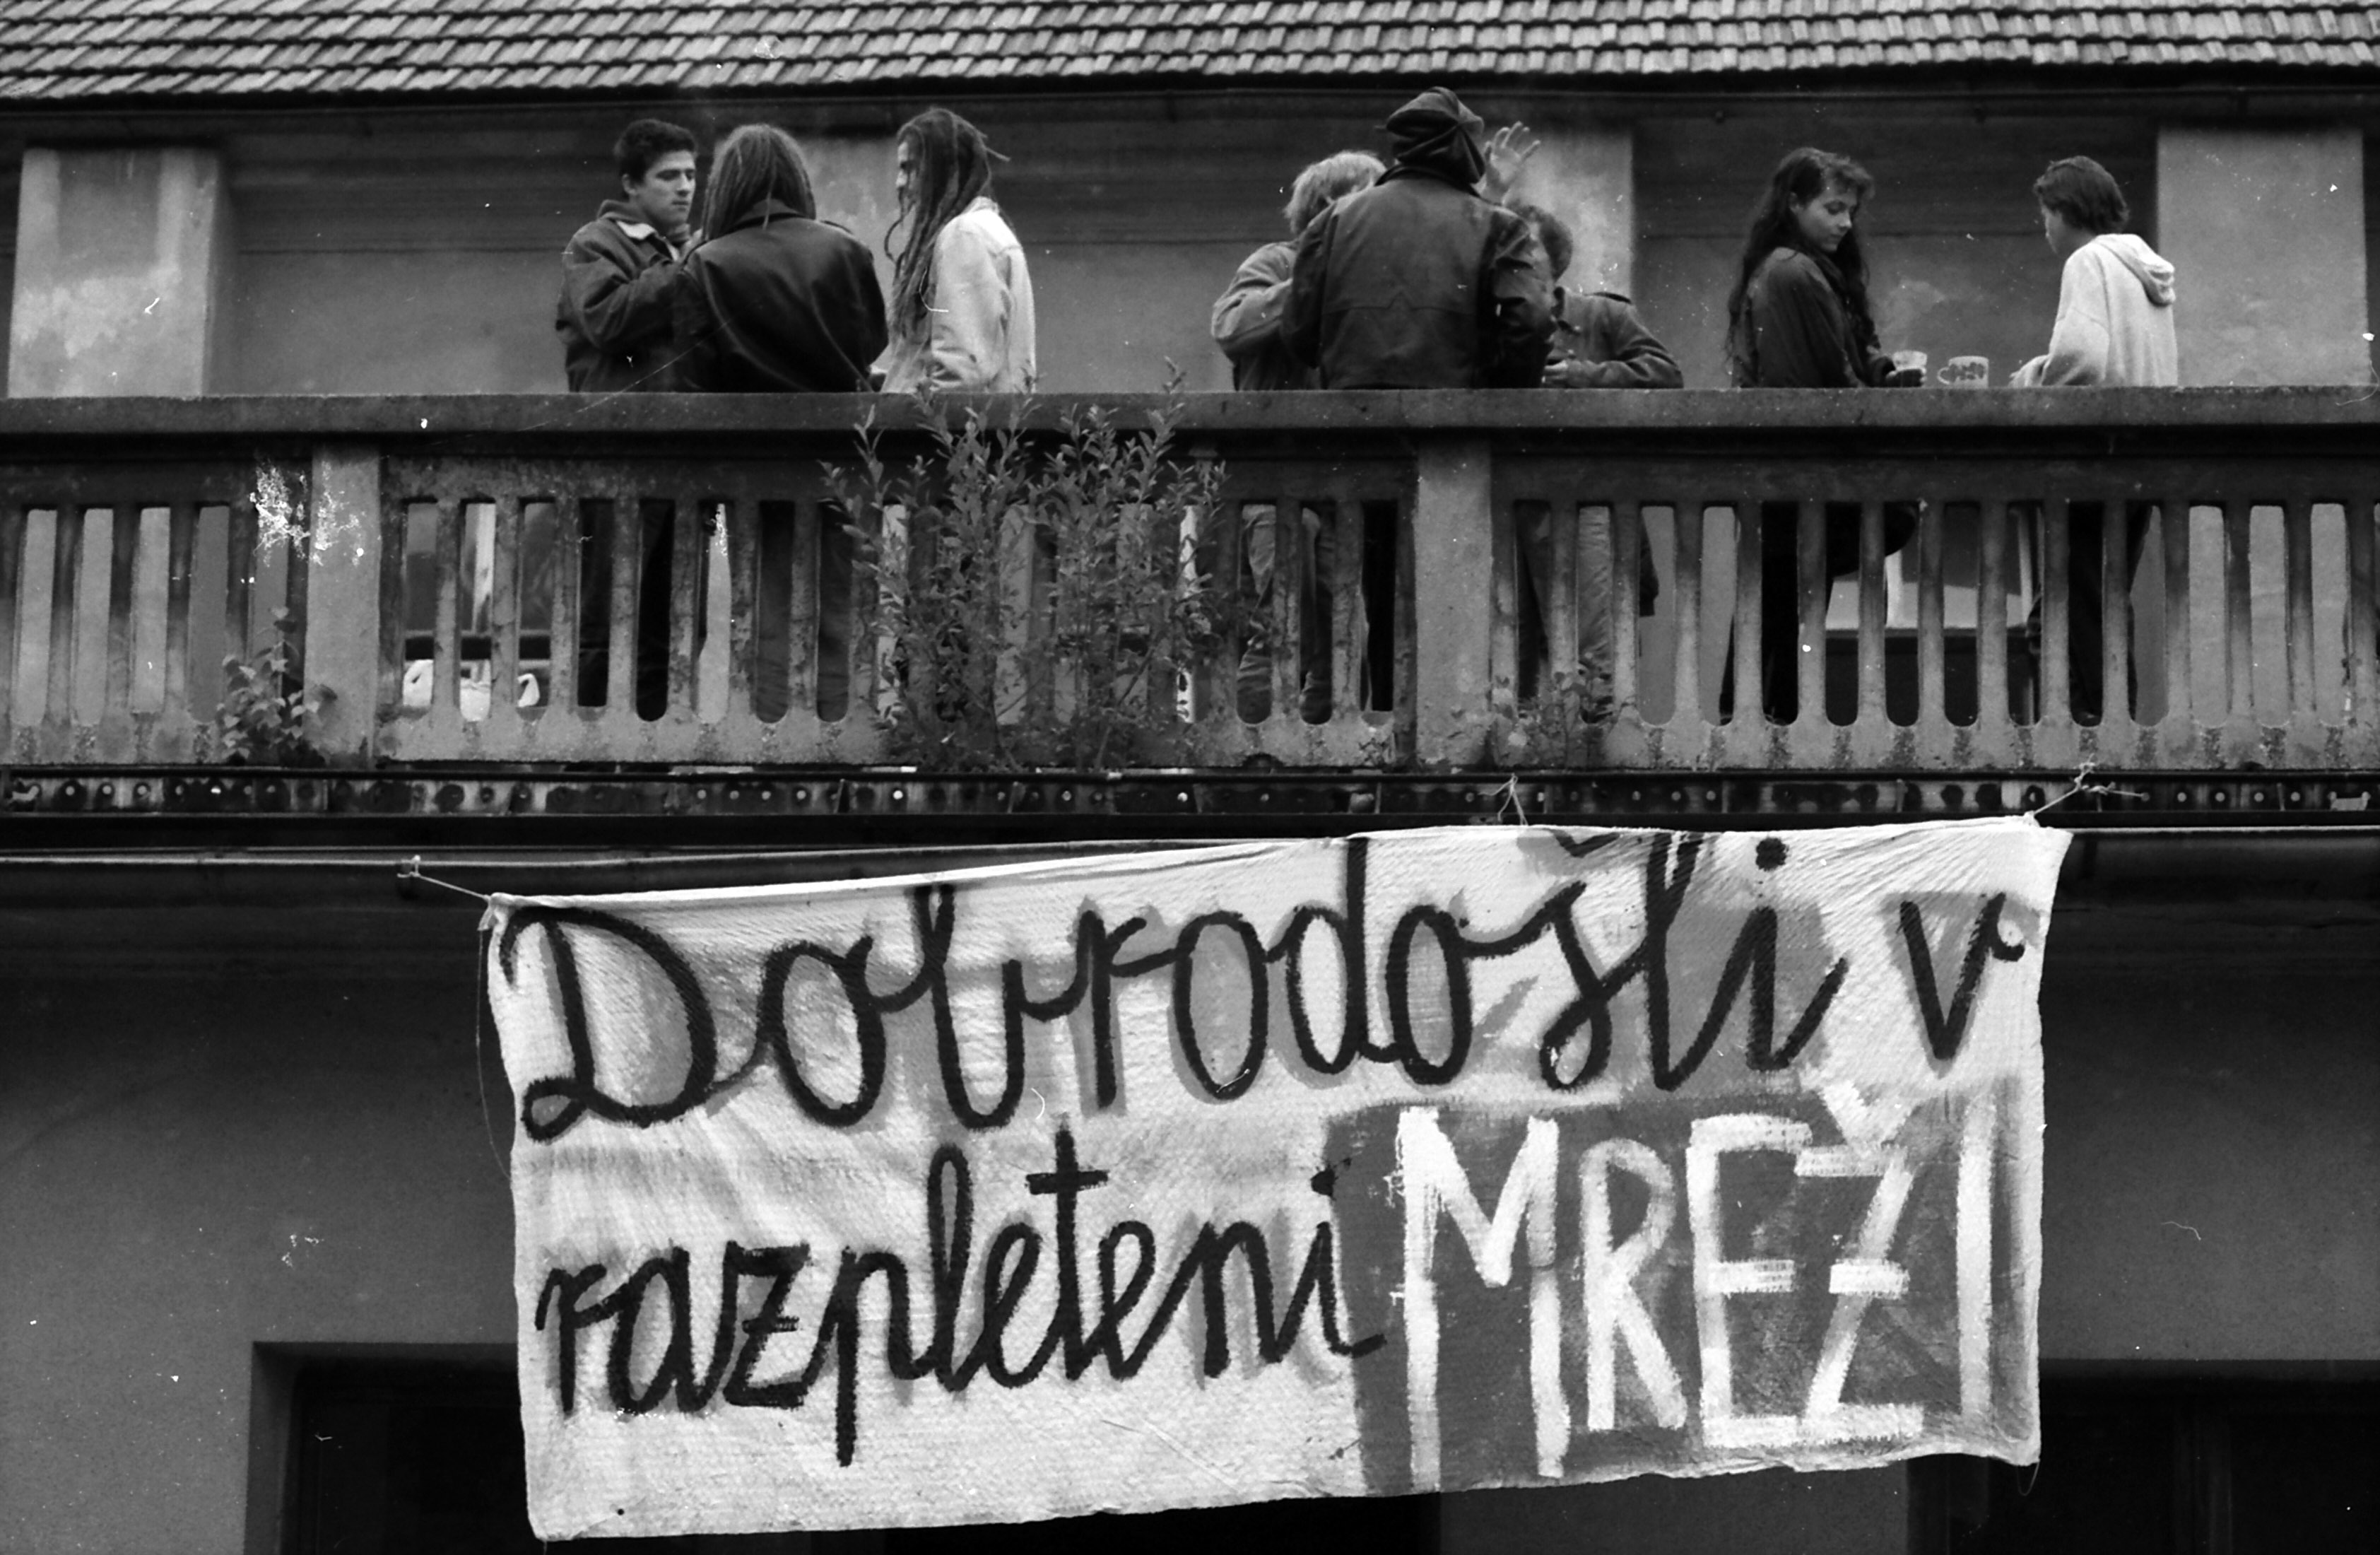 Dobrodošli v
razpleteni MREŽI